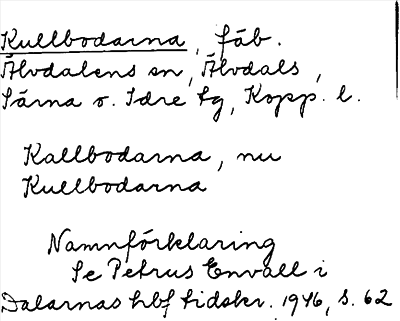 Kullbodarna, fäb.
Älvdalens sn, Älvdals,
Särna o. Idre tg, Kopp. l.
Kallbodarna, nu
Kullbodarna
Namnförklaring
Se Petrus Envall i
Dalarnas hbf tidskr. 1946, s. 62